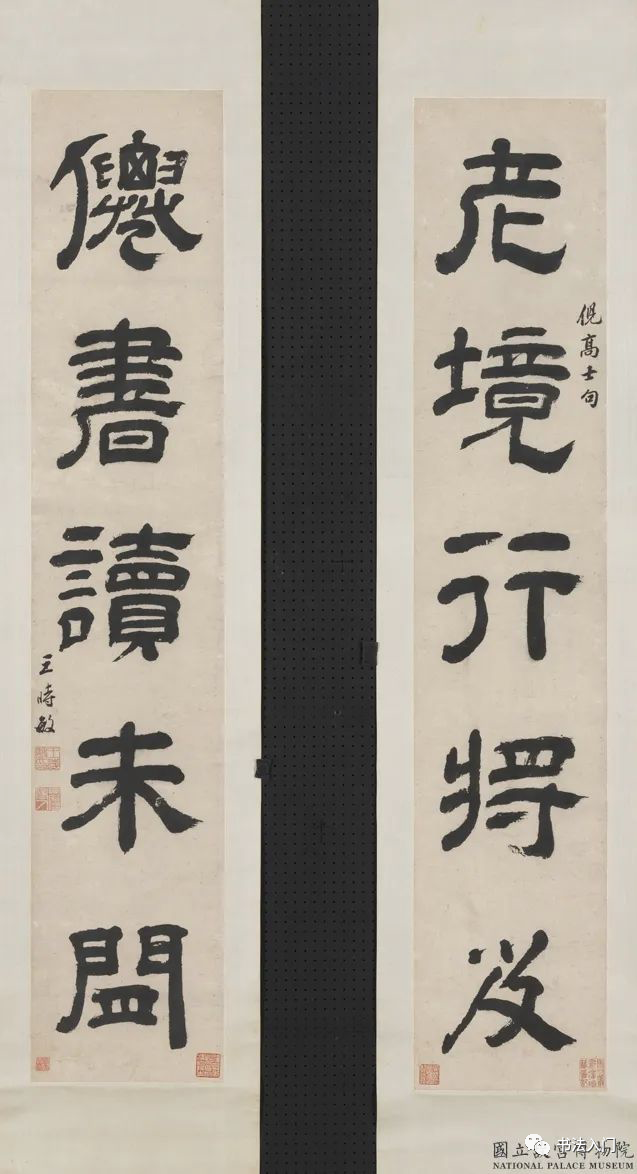 老境行將及
倪高士句
僊書讀未
王時敏
國立故宮博物院
NATIONAL PALACE MUSEUM
书法入门